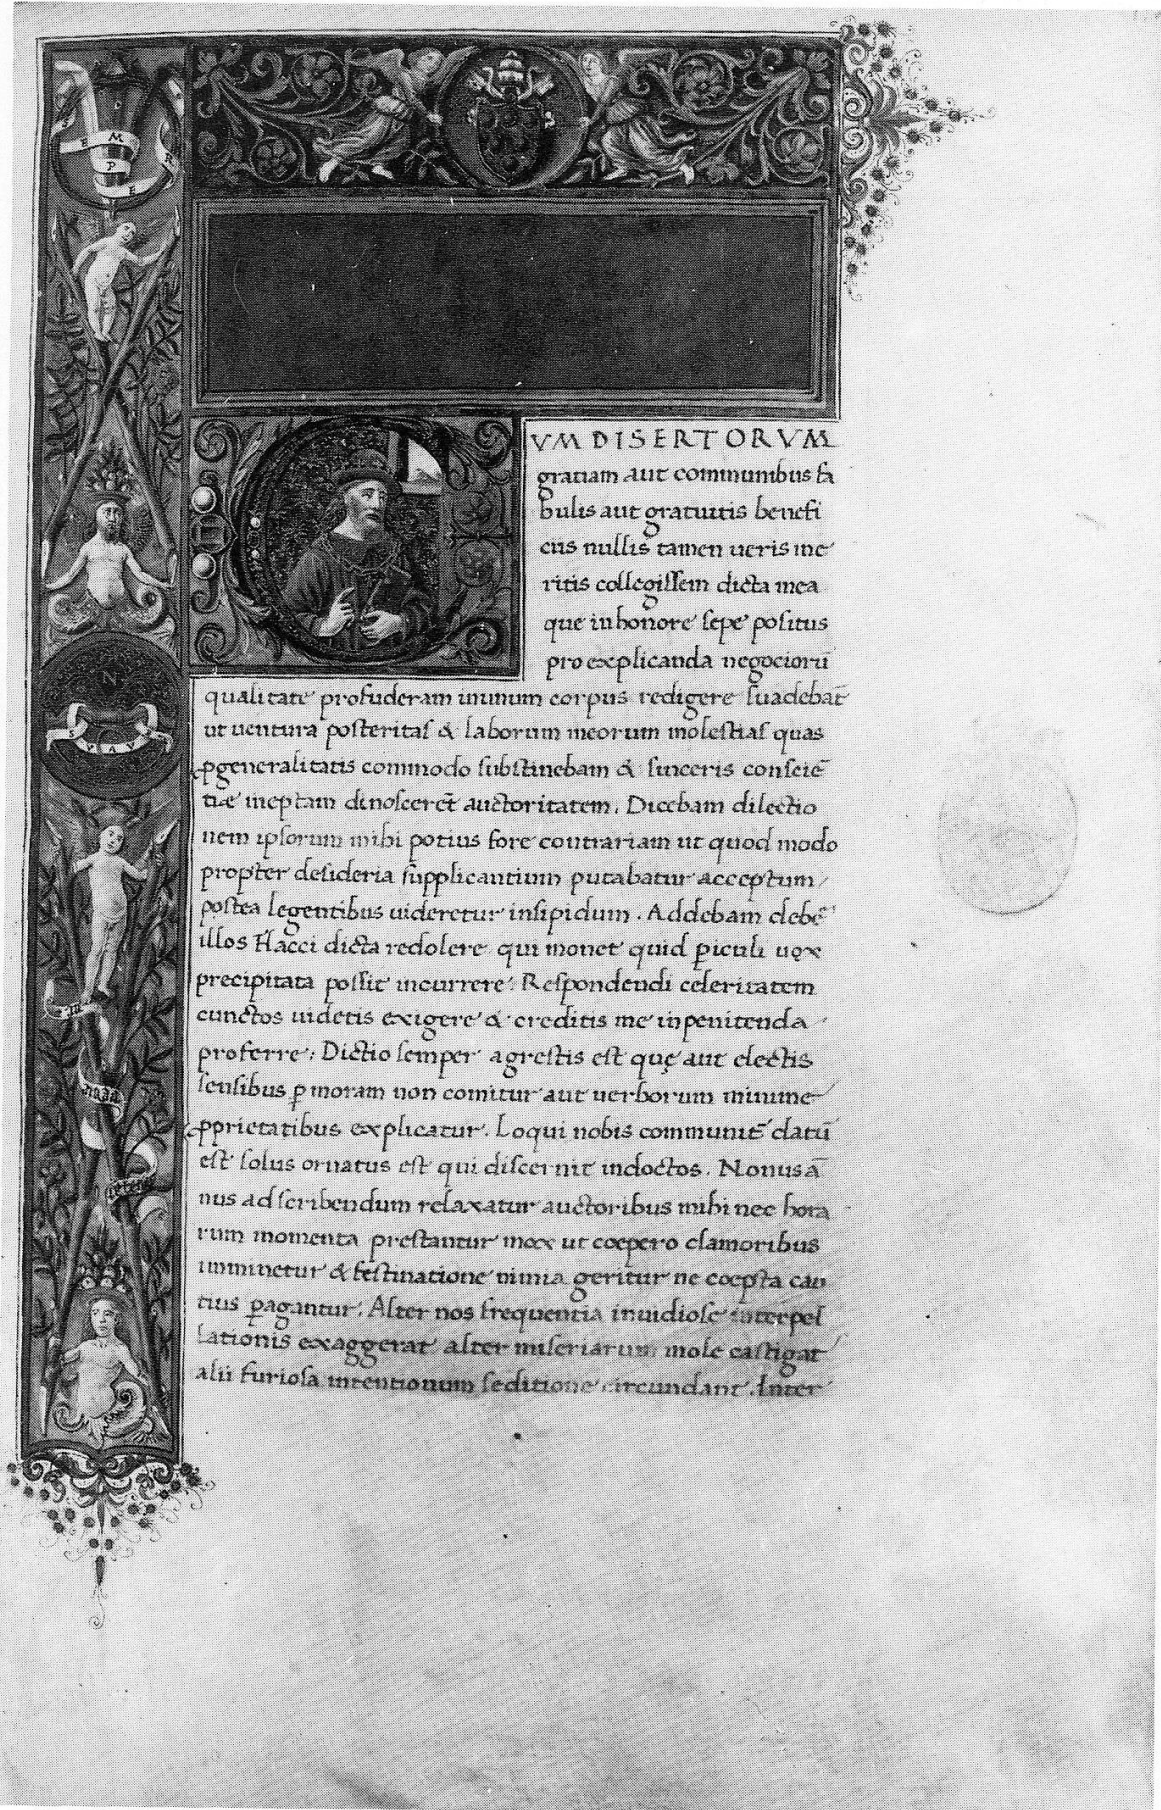 SEMPER
N
SVAVE
VM DISERTORVM
gratiam aut communibus fa
bulis aut gratuitis benefi
ciis nullis tamen ueris me
ritis collegissem dicta mea
que in honore sepe positus
pro explicanda negociorū
qualitate profuderam in unum corpus redigere suadebāt
ut uentura posteritas & laborum meorum molestias quas
ꝓgeneralitatis commodo substinebam & sinceris consciē
tiæ ineptam dinosceret̄ auctoritatem. Dicebam dilectio
nem ipsorum mihi potius fore contrariam ut quod modo
propter desideria supplicantium putabatur acceptum
postea legentibus uideretur insipidum. Addebam debē
illos Flacci dicta redolere qui monet quid ꝑiculi uox
precipitata possit incurrere: Respondendi celeritatem
cunctos uidetis exigere & creditis me inpenitenda
proferre: Dictio semper agrestis est quę aut electis
sensibus ꝑ moram non comitur aut uerborum minime
ꝓprietatibus explicatur. Loqui nobis communit̄ datū
est solus ornatus est qui discernit indoctos. Nonus ā
nus ad scribendum relaxatur auctoribus mihi nec hora
rum momenta prestantur mox ut coepero clamoribus
imminetur & festinatione nimia geritur ne coepta cau
tius ꝑagantur. Alter nos frequentia inuidiose interpel
lationis exaggerat alter miseriarum mole castigat
alii furiosa intentionum seditione circundant. Inter